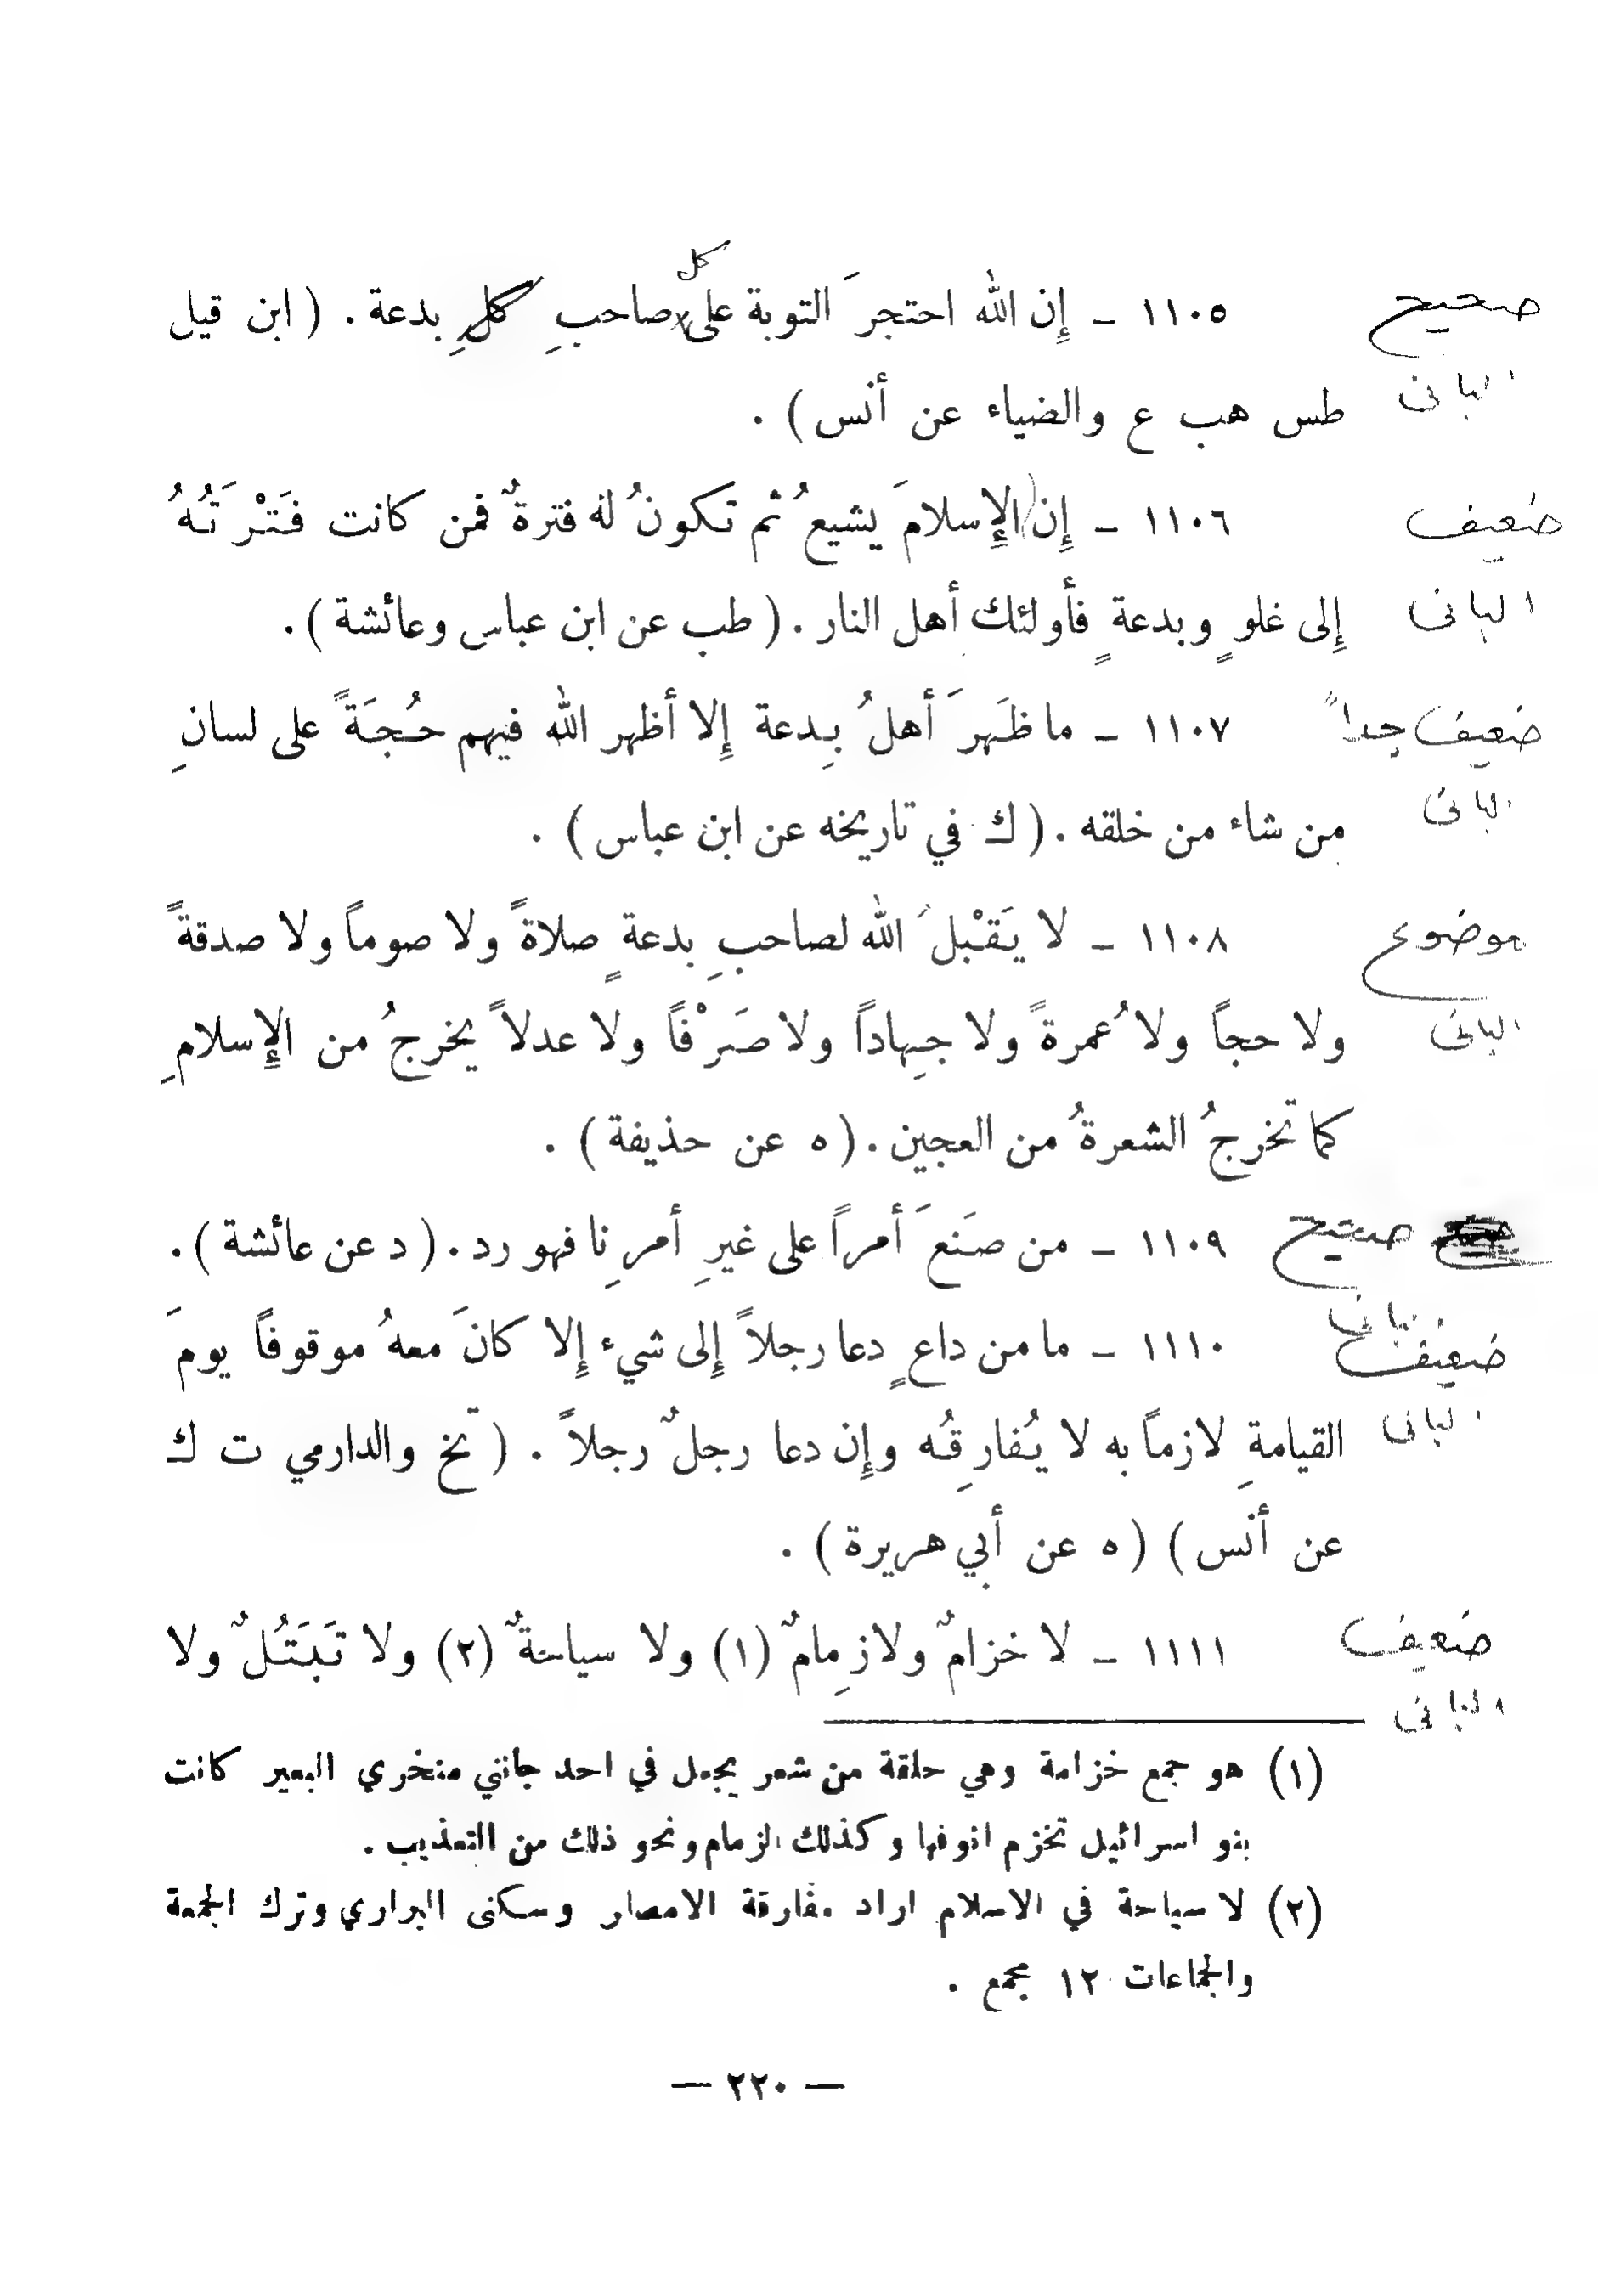 كل
صحيح ١١٠٥ – إِن الله احتجرَ التوبة على صاحبِ كلِ بدعة . ( ابن قيل
البانى طس هب ع والضياء عن أنس ) .
ضعيف ١١٠٦ – إِن الإِسلامَ يشيعُ ثم تكونُ له فترةٌ فمن كانت فَتْرَتُهُ
البانى إِلى غلوٍ وبدعةٍ فأولئك أهل النار . ( طب عن ابن عباس وعائشة ) .
ضعيف جداً ١١٠٧ – ما ظَهرَ أهلُ بِدعة إِلا أظهر الله فيهم حُجَةً على لسانِ
البانى من شاء من خلقه . ( ك في تاريخه عن ابن عباس ) .
موضوع ١١٠٨ – لا يَقْبلُ الله لصاحبِ بدعةٍ صلاةً ولا صوماً ولا صدقةً
البانى ولا حجاً ولا عُمرةً ولا جِهاداً ولا صَرْفاً ولا عدلاً يخرجُ من الإِسلامِ
كما تخرجُ الشعرةُ من العجين . ( ه عن حذيفة ) .
صحيح ١١٠٩ – من صنَعَ أمراً على غيرِ أمرِنا فهو رد . ( د عن عائشة ) .
البانى
ضعيف ١١١٠ – ما من داعٍ دعا رجلاً إِلى شيء إِلا كانَ معهُ موقوفاً يومَ
البانى القيامةِ لازماً به لا يُفارِقُه وإِن دعا رجلٌ رجلاً . ( تخ والدارمي ت ك
عن أنس ) ( ه عن أبي هريرة ) .
ضعيف ١١١١ – لا خزامٌ ولا زِمامٌ (١) ولا سياحةٌ (٢) ولا تَبَتُلٌ ولا
البانى
(١) هو جمع خزامة وهي حلقة من شعر يجعل في احد جانبي منخري البعير كانت
بنو اسرائيل تخزم انوفها وكذلك الزمام ونحو ذلك من التعذيب .
(٢) لا سياحة في الاسلام اراد مفارقة الامصار وسكنى البراري وترك الجمعة
والجماعات ١٢ مجمع .
— ٢٢٠ —